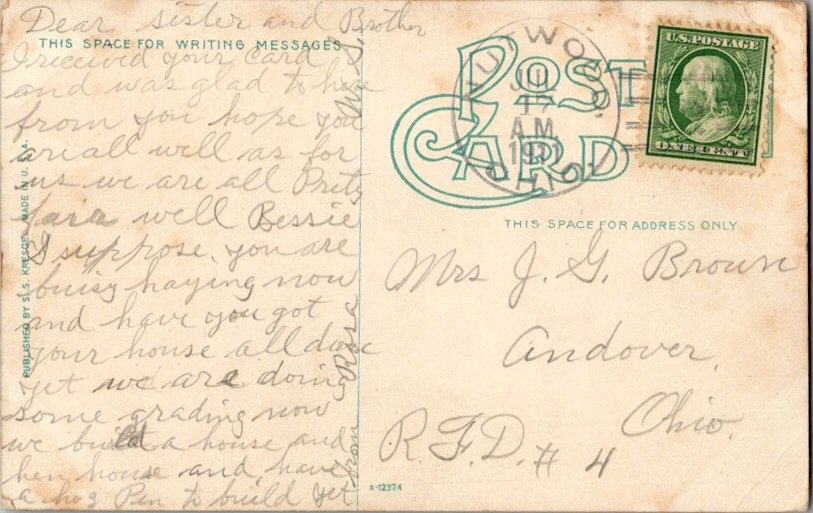 Dear Sister and Brother
THIS SPACE FOR WRITING MESSAGES
I received your Card
and was glad to here
from you hope you
are all well as for
us we are all Prety
fair well Bessie
I suppose you are
buisy haying now
and have you got
your house all done
yet we are doing
some grading now
we build a house and
hen house and have
a hog Pen to build yet
from Rosa
PUBLISHED BY S. S. KRESGE. MADE IN U. S. A.
POST CARD
JUL
17
A.M.
1911
OHIO
U.S. POSTAGE
ONE CENT
THIS SPACE FOR ADDRESS ONLY.
Mrs J. G. Brown
Andover,
Ohio.
R.F.D. # 4
A-12374